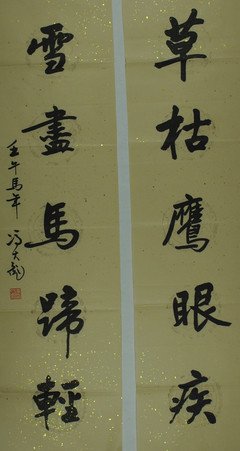 草枯鹰眼疾
雪盡馬蹄輕
壬午馬年